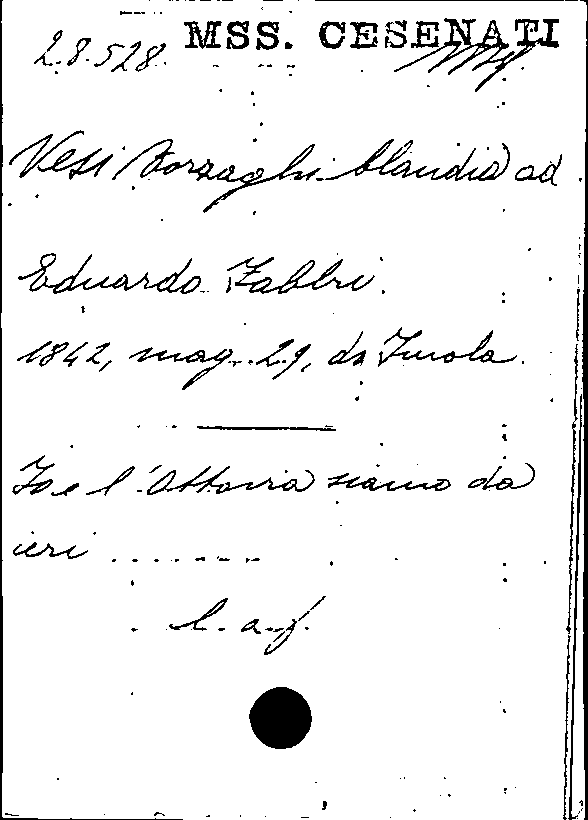 2.8.528. MSS. CESENATI
Vesi Borzaghi Claudia ad
Eduardo Fabbri.
1842, mag. 29, da Imola.
Io e l'Ottavia siamo da
ieri .......
l. a. f.